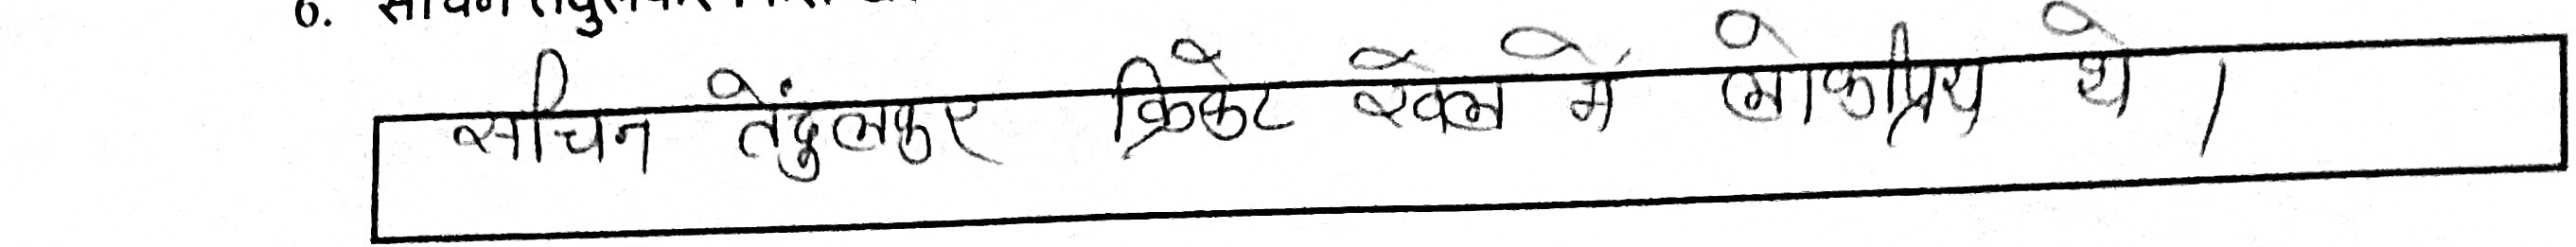 6. सचिन तेंदुलकर
सचिन तेंदुलकर क्रिकेट खेल में लोकप्रिय थे।